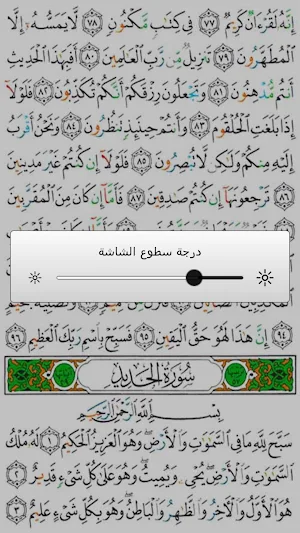 إِنَّهُ لَقُرْءَانٌ كَرِيمٌ ٧٧ فِي كِتَابٍ مَّكْنُونٍ ٧٨ لَّا يَمَسُّهُ إِلَّا
الْمُطَهَّرُونَ ٧٩ تَنزِيلٌ مِّن رَّبِّ الْعَالَمِينَ ٨٠ أَفَبِهَذَا الْحَدِيثِ
أَنتُم مُّدْهِنُونَ ٨١ وَتَجْعَلُونَ رِزْقَكُمْ أَنَّكُمْ تُكَذِّبُونَ ٨٢ فَلَوْلَا
إِذَا بَلَغَتِ الْحُلْقُومَ ٨٣ وَأَنتُمْ حِينَئِذٍ تَنظُرُونَ ٨٤ وَنَحْنُ أَقْرَبُ
إِلَيْهِ مِنكُمْ وَلَٰكِن لَّا تُبْصِرُونَ ٨٥ فَلَوْلَا إِن كُنتُمْ غَيْرَ مَدِينِينَ
٨٦ تَرْجِعُونَهَا إِن كُنتُمْ صَادِقِينَ ٨٧ فَأَمَّا إِن كَانَ مِنَ الْمُقَرَّبِينَ
درجة سطوع الشاشة
٩٤ إِنَّ هَٰذَا لَهُوَ حَقُّ الْيَقِينِ ٩٥ فَسَبِّحْ بِاسْمِ رَبِّكَ الْعَظِيمِ ٩٦
سُورَةُ الْحَدِيدِ
بِسْمِ اللَّهِ الرَّحْمَٰنِ الرَّحِيمِ
سَبَّحَ لِلَّهِ مَا فِي السَّمَٰوَٰتِ وَالْأَرْضِ وَهُوَ الْعَزِيزُ الْحَكِيمُ ١ لَهُ مُلْكُ
السَّمَٰوَٰتِ وَالْأَرْضِ يُحْيِي وَيُمِيتُ وَهُوَ عَلَىٰ كُلِّ شَيْءٍ قَدِيرٌ ٢
هُوَ الْأَوَّلُ وَالْآخِرُ وَالظَّاهِرُ وَالْبَاطِنُ وَهُوَ بِكُلِّ شَيْءٍ عَلِيمٌ ٣